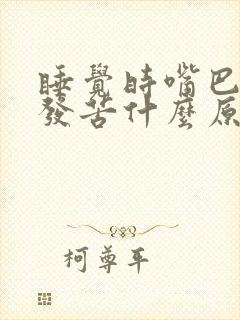 睡覺時嘴巴
發苦什麼原
柯尊平